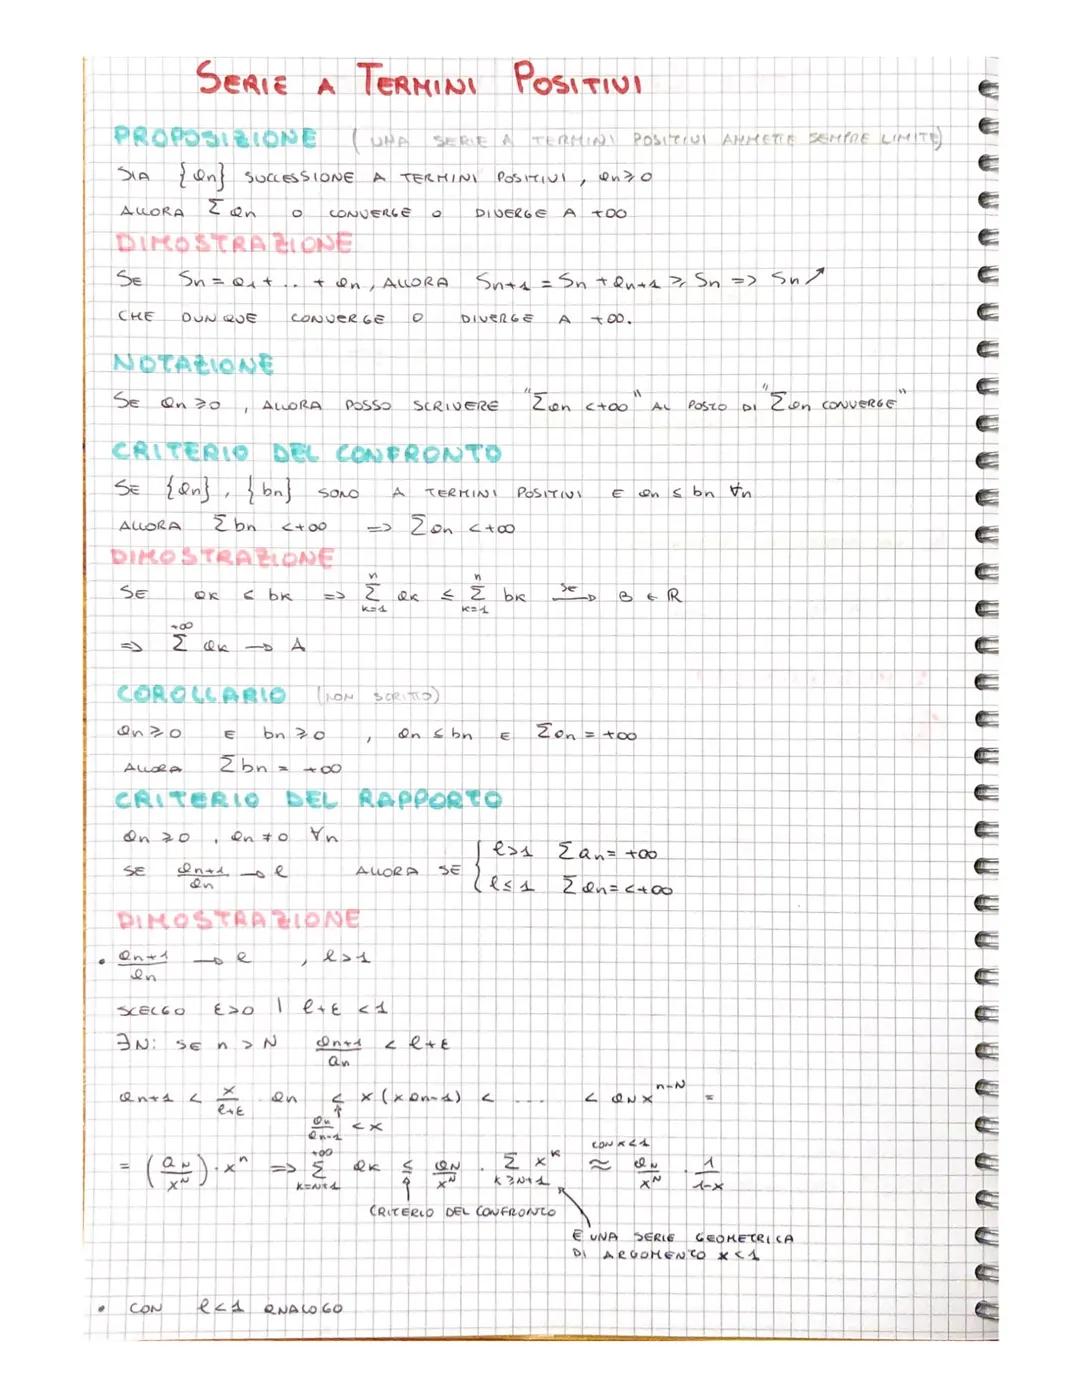 SERIE A TERMINI POSITIVI
PROPOSIZIONE (UNA SERIE A TERMINI POSITIVI AMMETTE SEMPRE LIMITE)
SIA {an} SUCCESSIONE A TERMINI POSITIVI, an ≥ 0
ALLORA Σ an O CONVERGE O DIVERGE A +∞
DIMOSTRAZIONE
SE Sn = a1 + .. + an, ALLORA Sn+1 = Sn + an+1 ≥ Sn => Sn ↗
CHE DUNQUE CONVERGE O DIVERGE A +∞.
NOTAZIONE
SE an ≥ 0, ALLORA POSSO SCRIVERE "Σ an < +∞" AL POSTO DI "Σ an CONVERGE"
CRITERIO DEL CONFRONTO
SE {an}, {bn} SONO A TERMINI POSITIVI E an ≤ bn ∀n
ALLORA Σ bn < +∞ => Σ an < +∞
DIMOSTRAZIONE
SE ak ≤ bk => Σ_{k=1}^{n} ak ≤ Σ_{k=1}^{n} bk —SE→ B ∈ R
=> Σ^{+∞} ak → A
COROLLARIO (NON SCRITTO)
an ≥ 0 E bn ≥ 0, an ≤ bn E Σ an = +∞
ALLORA Σ bn = +∞
CRITERIO DEL RAPPORTO
an ≥ 0, an ≠ 0 ∀n
SE an+1/an → l ALLORA SE { l>1 Σ an = +∞
l≤1 Σ an = < +∞
DIMOSTRAZIONE
• an+1/an → l, l>1
SCELGO ε>0 | l+ε <1
∃N: SE n > N an+1/an < l+ε
an+1 < x/l+ε an < x(x an-1) < ... < aN x^{n-N} =
an/an-1 < x
= (aN/x^N) · x^n => Σ_{k=N+1}^{+∞} ak ≤ aN/x^N · Σ_{k≥N+1} x^k ≈ CON x<1 aN/x^N · 1/1-x
CRITERIO DEL CONFRONTO
È UNA SERIE GEOMETRICA
DI ARGOMENTO x<1
• CON l<1 ANALOGO